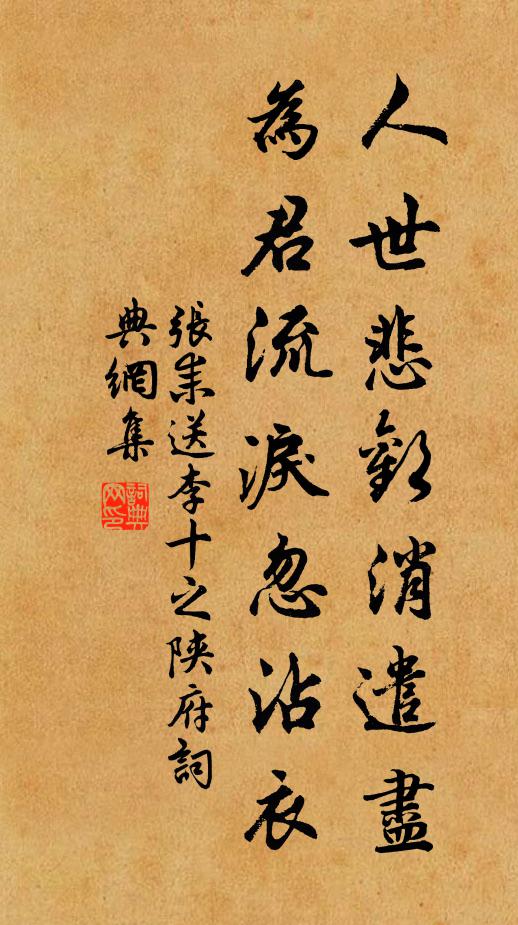 人世悲歡消遣盡
為君流淚忽沾衣
張耒送李十之陝府詞
典網集
詞典
网印